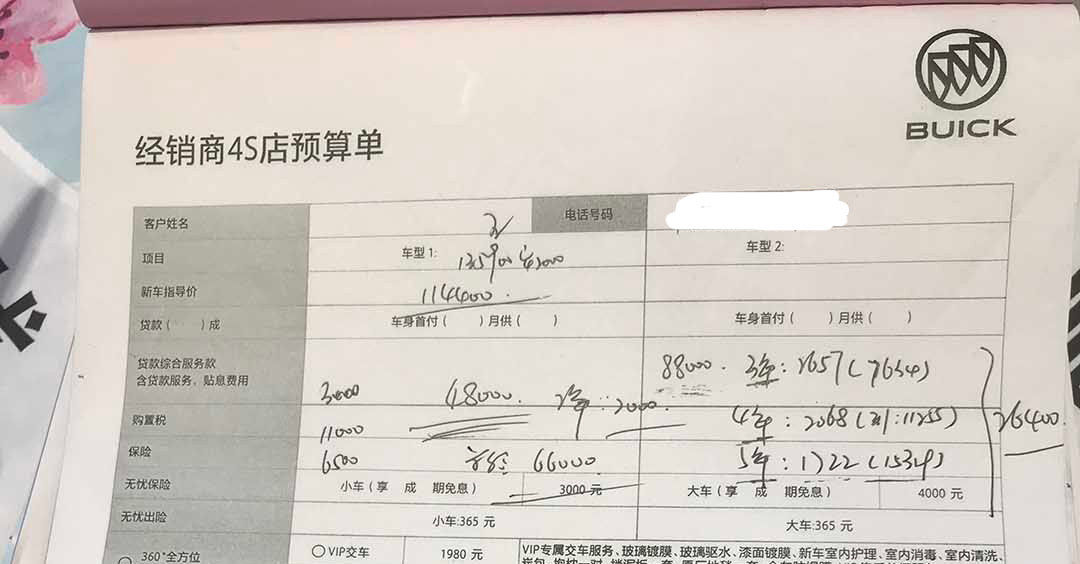 BUICK
经销商4S店预算单
客户姓名 电话号码
项目 车型1: 车型2:
新车指导价 114400.
贷款（ ）成 车身首付（ ）月供（ ） 车身首付（ ）月供（ ）
贷款综合服务款 88000. 3年: 2657(7654)
含贷款服务、贴息费用 3000 48000 2年: 2000.
购置税 11000 4年: 2068(利:11255) 26400.
保险 6500 66000 5年: 1722(15329)
无忧保险 小车（享 成 期免息） 3000 元 大车（享 成 期免息） 4000 元
无忧出险 小车:365 元 大车:365 元
360°全方位 VIP交车 1980 元 VIP专属交车服务、玻璃镀膜、玻璃驱水、漆面镀膜、新车室内护理、室内消毒、室内清洗、